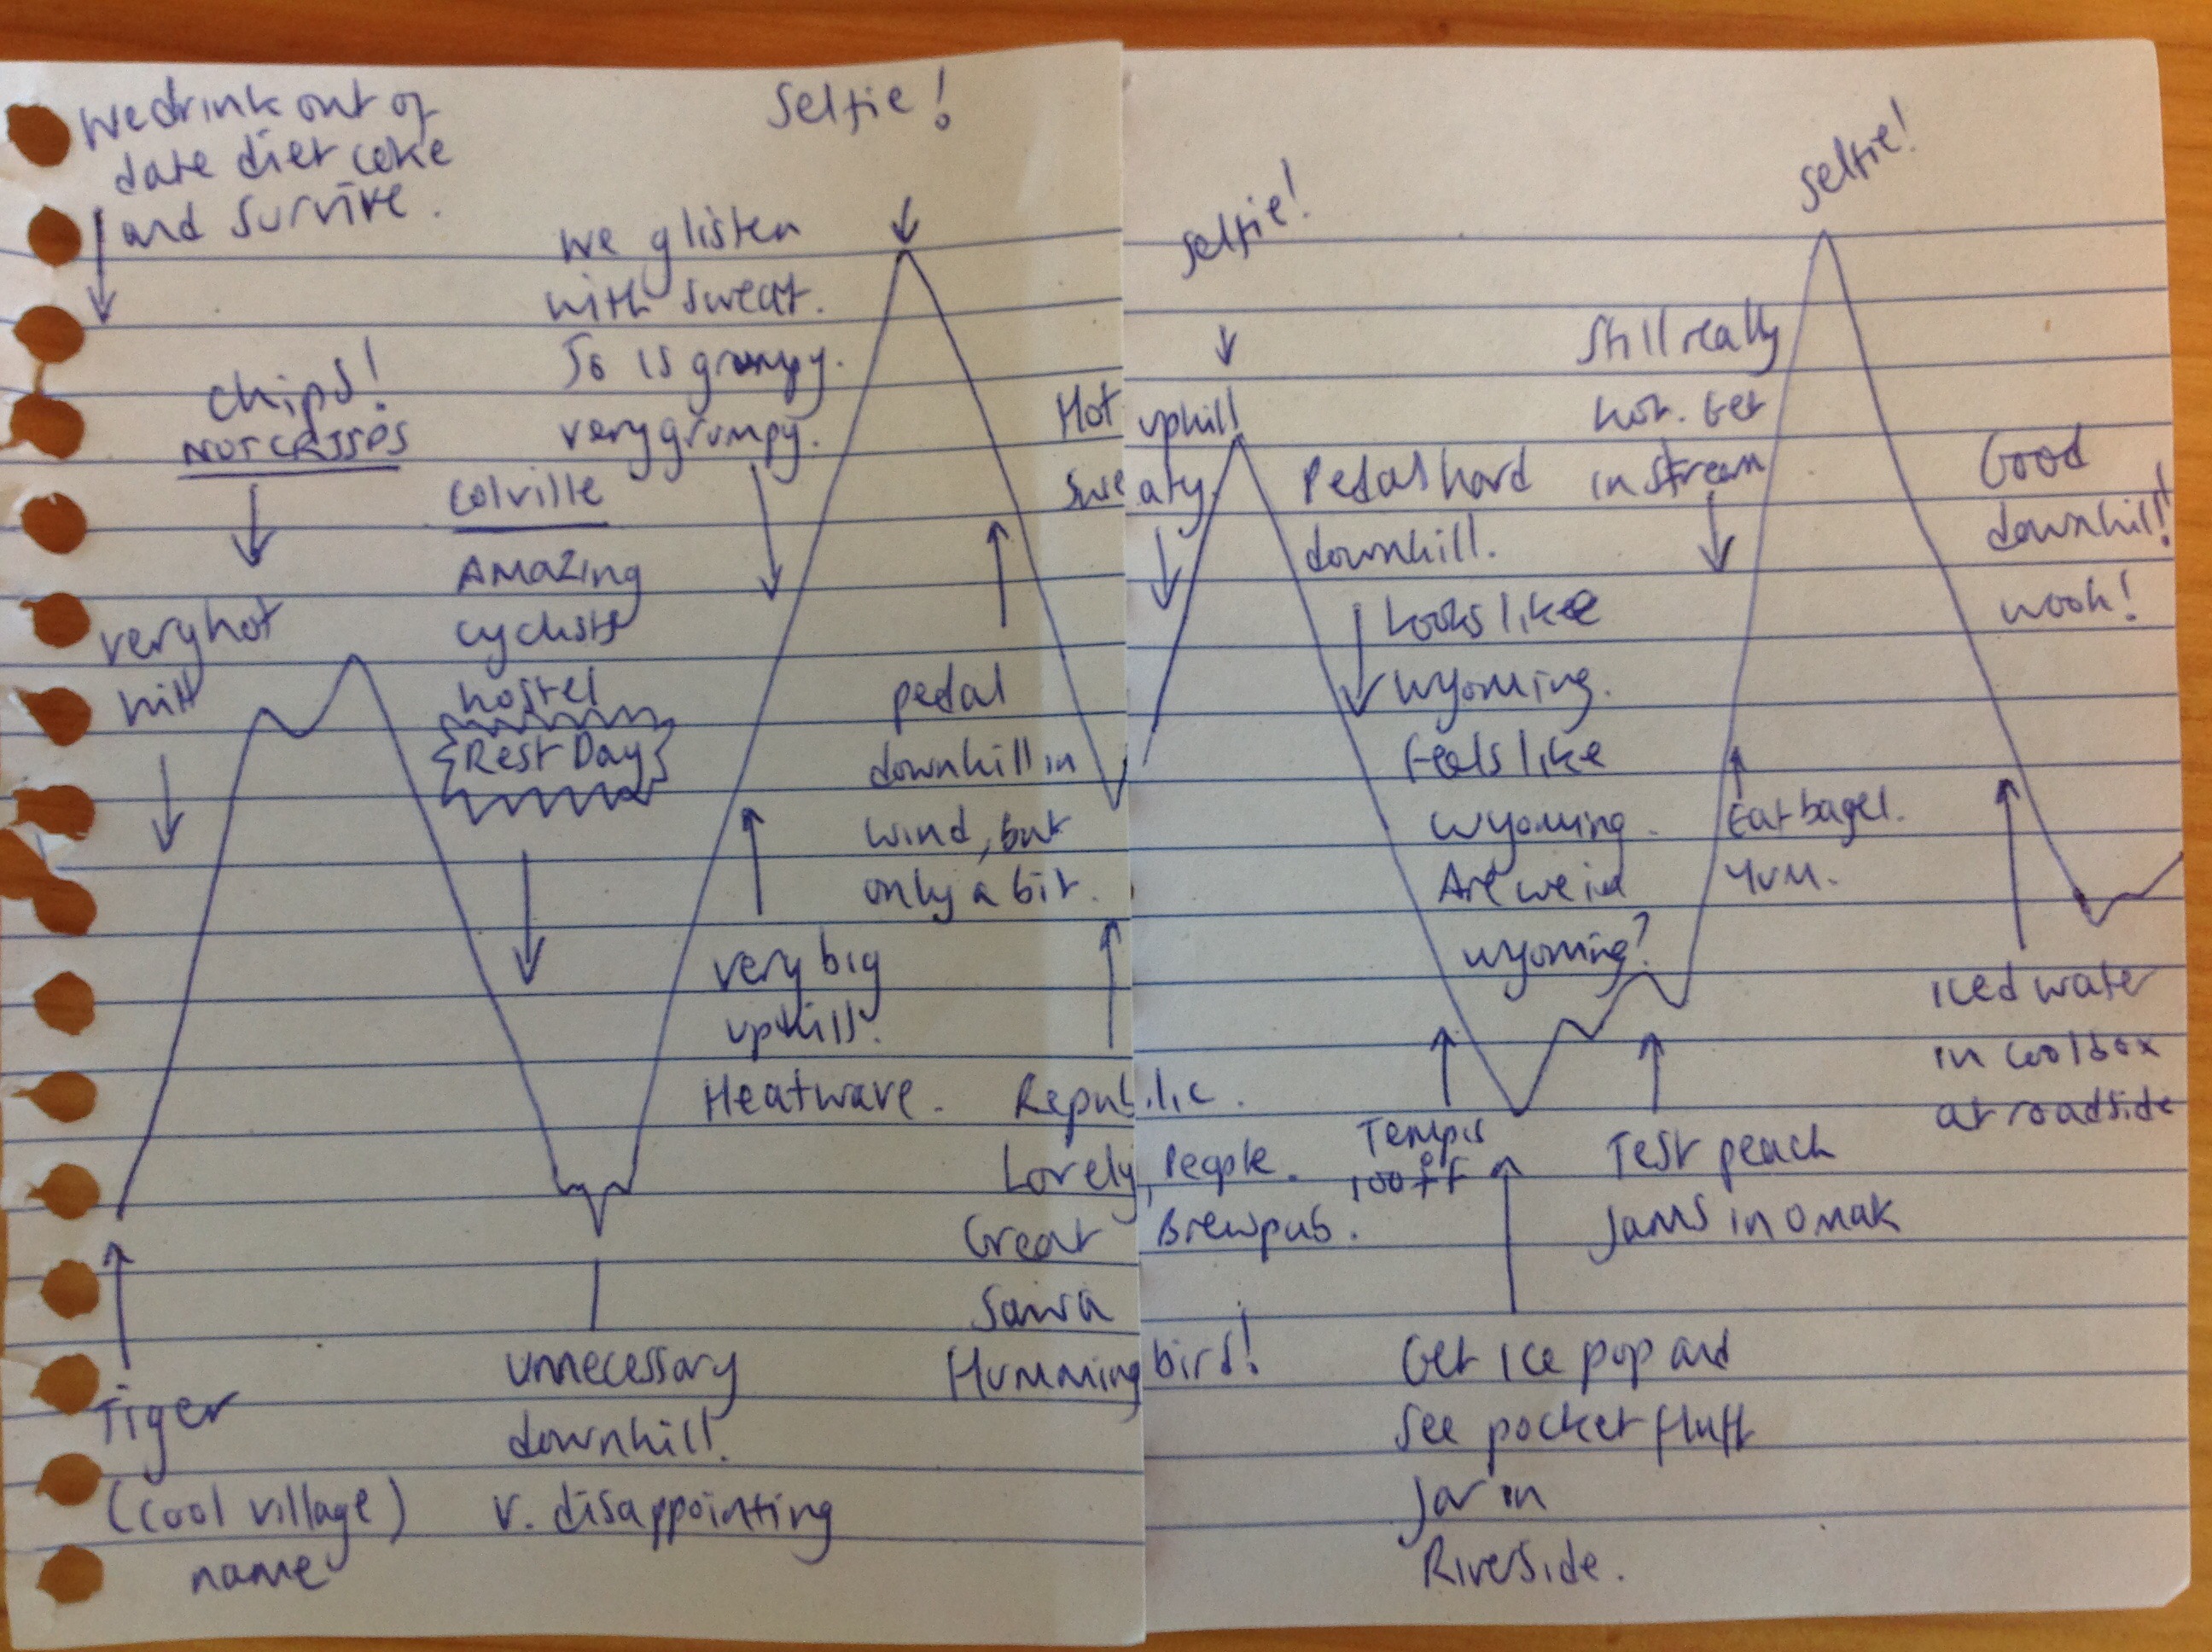 We drink out of
date diet coke
and survive.
chips!
NOT CRISPS
very hot
hill
Tiger
(cool village)
name
Colville
AMAZing
cyclists
hostel
Rest Day
unnecessary
downhill.
v. disappointing
we glisten
with sweat.
Jo is grumpy.
very grumpy.
Selfie!
very big
uphill!
Heatwave.
pedal
downhill in
wind, but
only a bit.
Republic.
Lovely People.
Great Brewpub.
Saw a
Hummingbird!
Selfie!
Hot uphill
sweaty.
Pedal hard
downhill.
Looks like
Wyoming.
Feels like
Wyoming.
Are we in
Wyoming?
Temp is
100°F
Get ice pop and
see pocket fluff
Jar in
Riverside.
Test peach
Jams in Omak
Still really
hot. Get
in stream
Eat bagel.
Yum.
Selfie!
Good
downhill!
wooh!
Iced water
in coolbox
at roadside